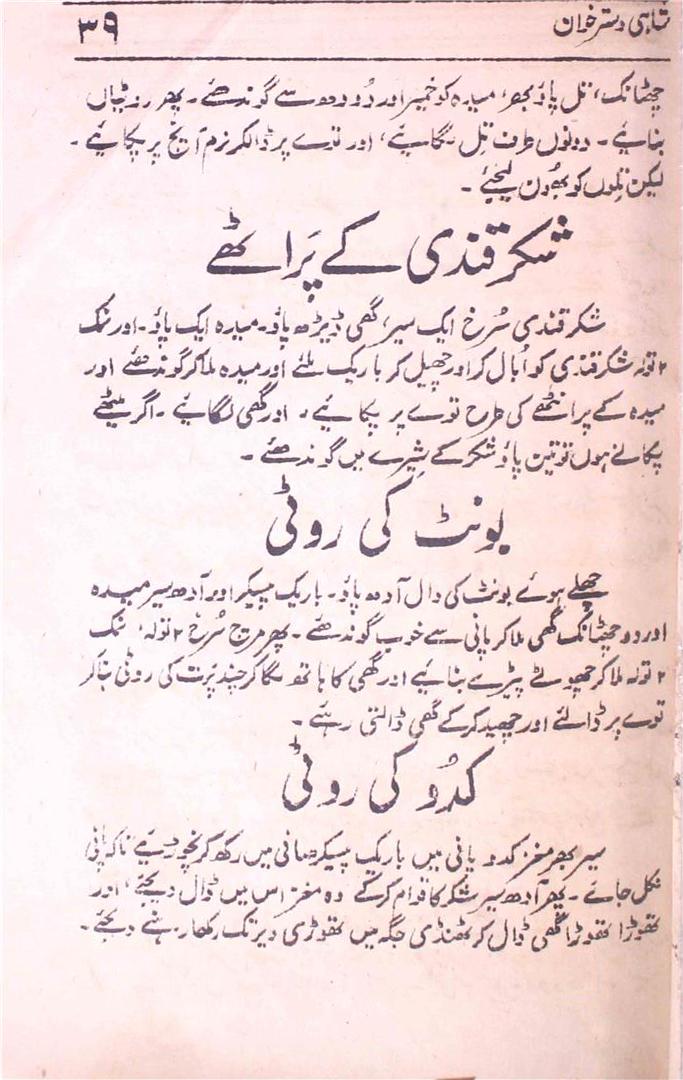 شاہی دسترخوان ۳۹
چھٹانک، تل پاؤ بھر، میدہ کو خمیر اور دُودھ سے گوندھئے۔ پھر روٹیاں
بنایئے۔ دونوں طرف تِل لگایئے، اور توے پر ڈالکر نرم آنچ پر پکایئے۔
لیکن تِلوں کو بھُون لیجئے۔
شکرقندی کے پَراٹھے
شکرقندی سُرخ ایک سیر، گھی ڈیڑھ پاؤ۔ میدہ ایک پاؤ۔ اور نمک
۲ تولہ شکرقندی کو اُبال کر اور چھیل کر باریک ملئے اور میدہ ملا کر گوندھئے اور
میدہ کے پرانٹھے کی طرح توے پر پکایئے۔ اور گھی لگایئے۔ اگر میٹھے
پکانے ہوں تو تین پاؤ شکر کے شِیرے میں گوندھئے۔
بونٹ کی روٹی
چھلے ہوئے بونٹ کی دال آدھ پاؤ۔ باریک پیسکر اور آدھ سیر میدہ
اور دو چھٹانک گھی ملا کر پانی سے خوب گوندھئے۔ پھر مرچ سُرخ ۲ تولہ، نمک
۲ تولہ ملا کر چھوٹے پیڑے بنایئے اور گھی کا ہاتھ لگا کر چند پَرت کی روٹی بنا کر
توے پر ڈالئے اور چھید کر کے گھی ڈالتی رہئے۔
کدُو کی روٹی
سیر بھر مغز کدو پانی میں باریک پیسکر صافی میں رکھ کر نچوڑیئے تاکہ پانی
نکل جائے۔ پھر آدھ سیر شکر کا قوام کر کے وہ مغز اس میں ڈال دیجئے، اور
تھوڑا تھوڑا گھی ڈال کر ٹھنڈی جگہ میں تھوڑی دیر تک رکھا رہنے دیجئے۔